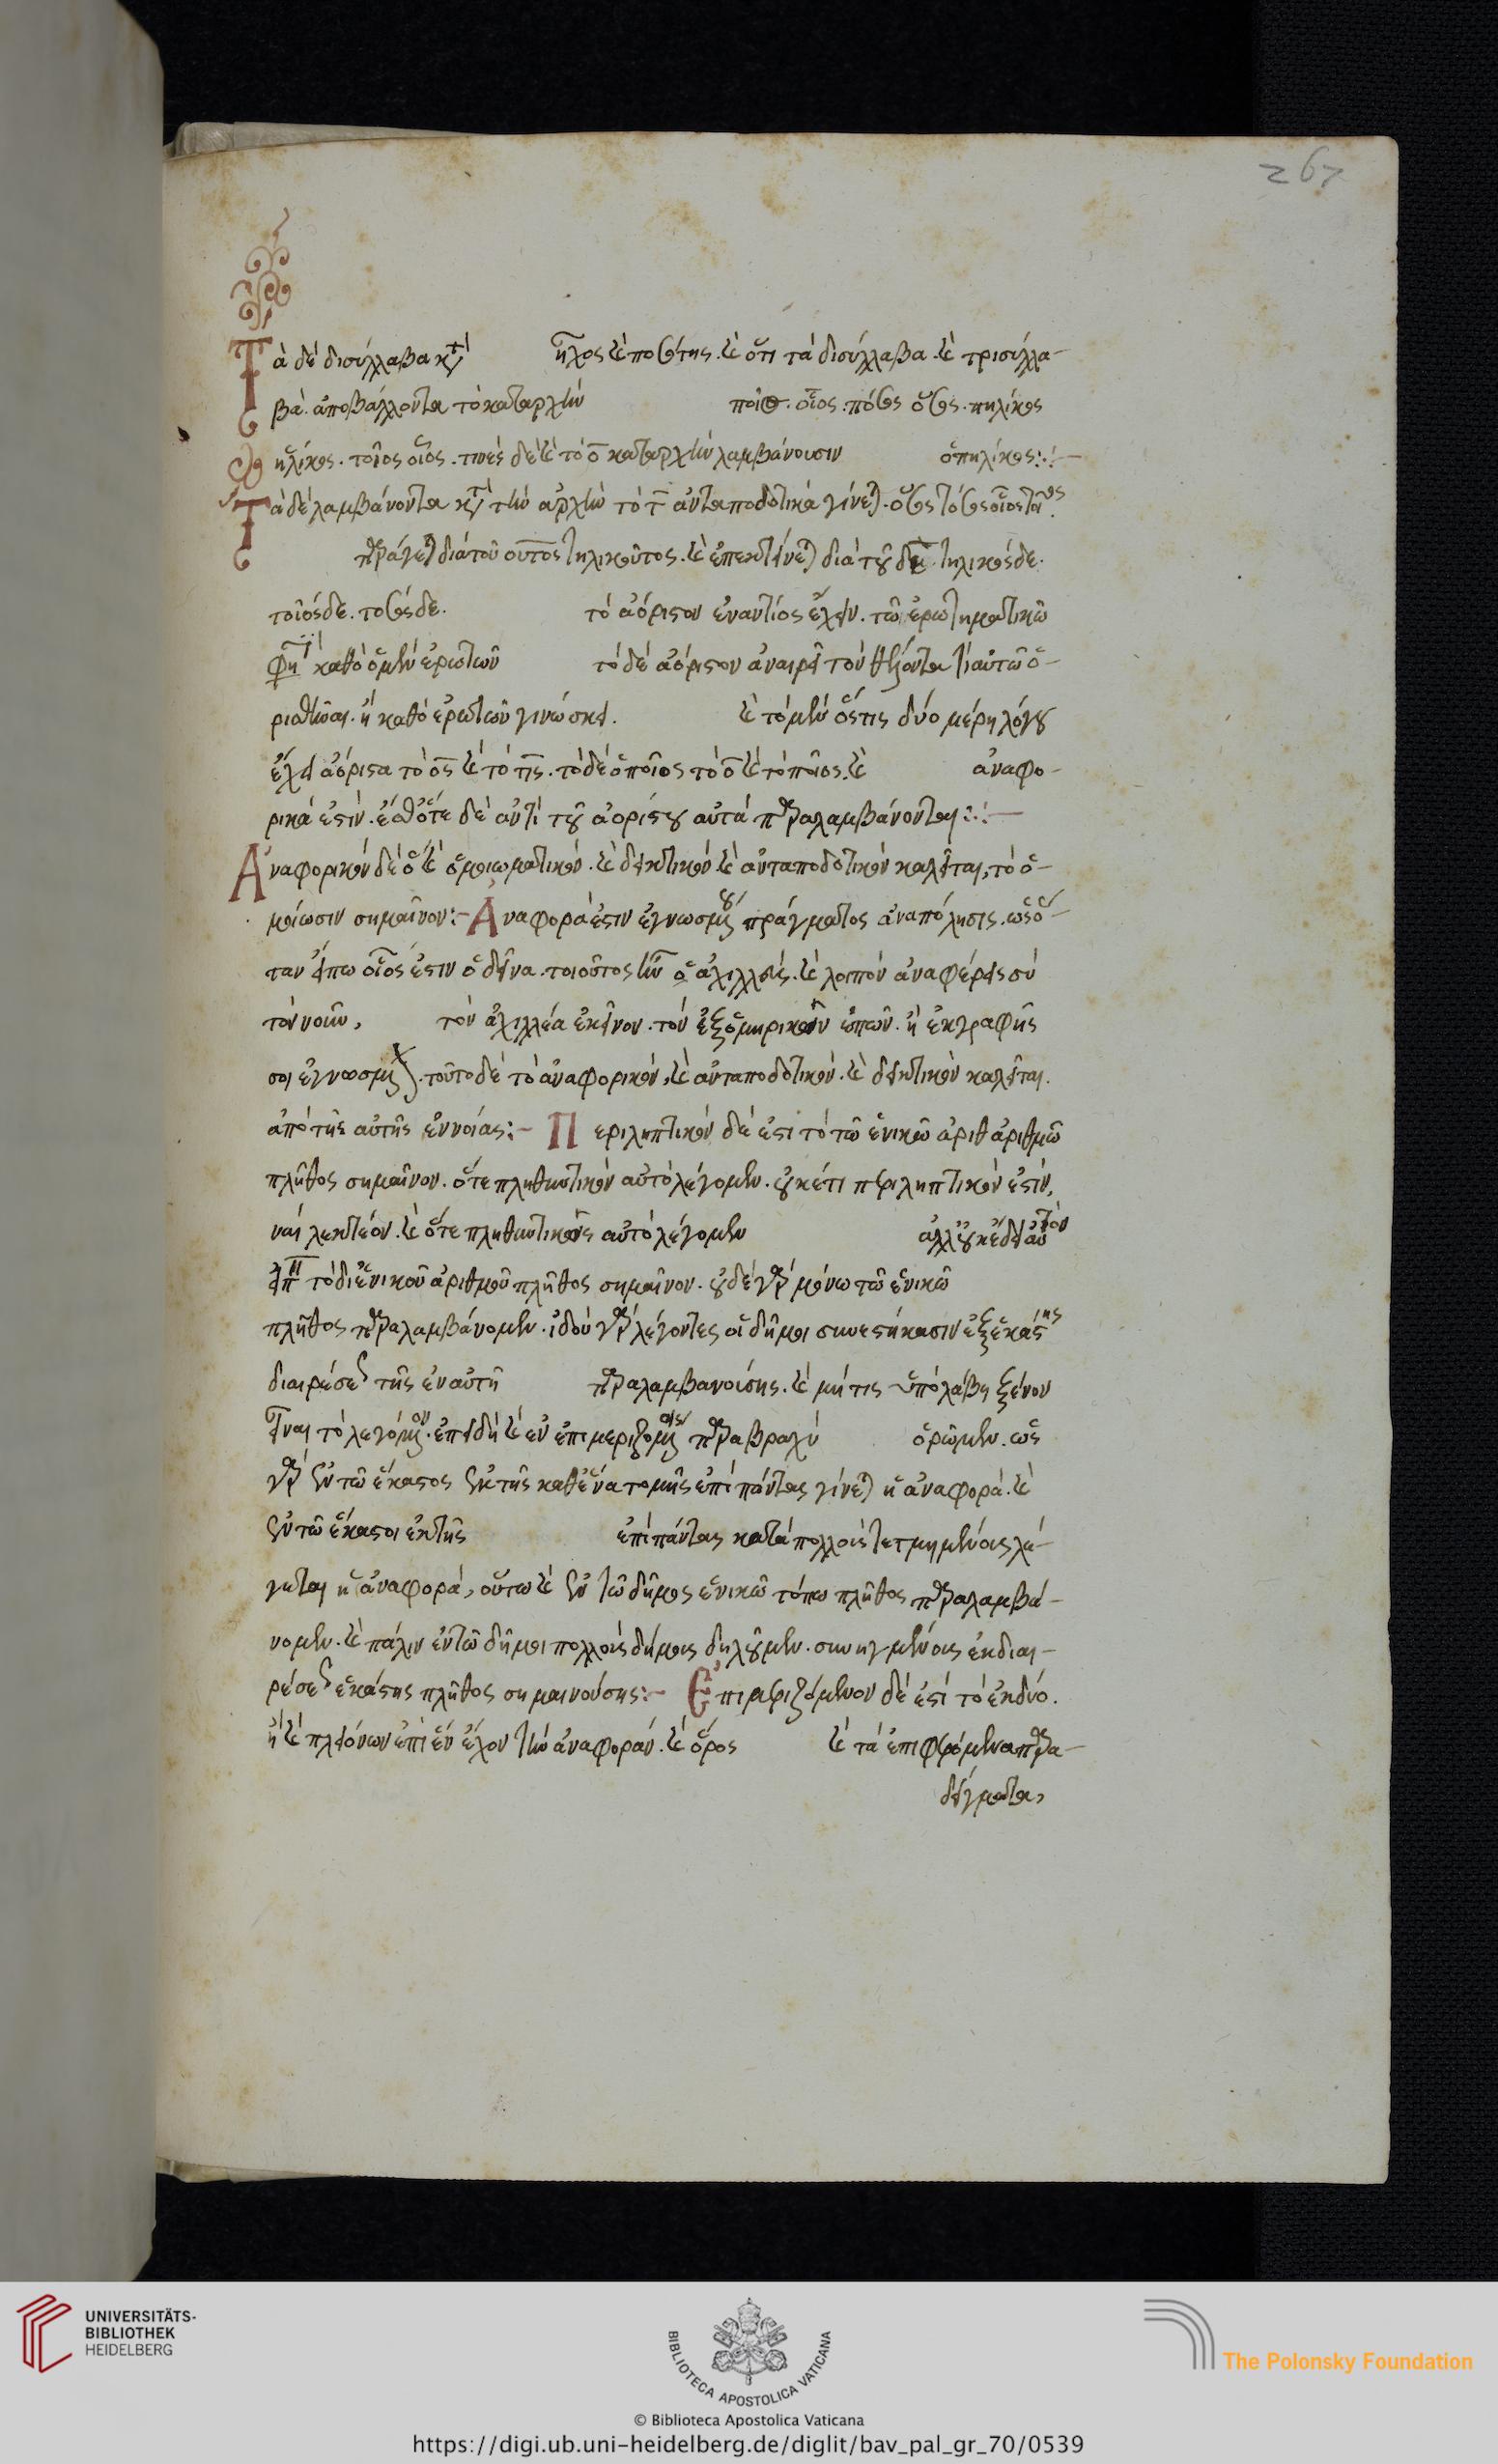 267
Τὰ δὲ δισύλλαβα κατὰ τέλος καὶ ποσότης. καὶ ὅτι τὰ δισύλλαβα καὶ τρισύλλα-
βα. ἀποβάλλοντα τὸ καταρχὴν ποῖος. οἷος. πόσος ὅσος. πηλίκος
ἡλίκος. τοῖος οἷος. τινὲς δὲ καὶ τὸ ο καταρχὴν λαμβάνουσιν ὁπηλίκος:·
Τὰ δὲ λαμβάνοντα κατὰ τὴν ἀρχὴν τὸ τ ἀνταποδοτικὰ γίνεται. ὅσος τόσος οἷος
παράγεται διὰ τοῦ οὗτος τηλικοῦτος. καὶ ἐπεκτείνεται διὰ τοῦ δε τηλικόσδε.
τοιόσδε. τοσόσδε. τὸ ἀόριστον ἐναντίος ἔχειν. τῶ ἐρωτηματικῶ
καθὸ ὁ μὲν ἐρωτῶν τὸ δὲ ἀόριστον ἀναιρεῖ τὸν θέλοντα τὶ αὐτῶ ὁ-
ρισθῆναι. ἢ καθὸ ἐρωτῶν γινώσκει. καὶ τὸ μὲν ὅστις δύο μέρη λόγου
ἔχει ἀόριστα τὸ ὃς καὶ τὸ τίς. τὸ δὲ ὁποῖος τὸ ο καὶ τὸ ποῖος. καὶ ἀναφο-
ρικά ἐστιν. ἔσθ ὅτε δὲ ἀντὶ τοῦ ἀορίστου αὐτὰ παραλαμβάνονται:·
Ἀναφορικὸν δὲ ὃ καὶ ὁμοιωματικὸν. καὶ δεικτικὸν. καὶ ἀνταποδοτικὸν καλεῖται, τὸ ὁ-
μοίωσιν σημαῖνον:- Ἀναφορά ἐστιν ἐγνωσμένου πράγματος ἀναπόλησις. ὡς ὅ-
ταν εἴπω οἷός ἐστιν ὁ δεῖνα. τοιοῦτος ἦν ὁ ἀχιλλεύς. καὶ λοιπὸν ἀναφέρεις σὺ
τὸν νοῦν, τὸν ἀχιλλέα ἐκεῖνον. τὸν ἐξ ὁμηρικῶν ἐπῶν. ἢ ἐκ γραφῆς
σοι ἐγνωσμένον. τοῦτο δὲ τὸ ἀναφορικὸν, καὶ ἀνταποδοτικὸν. καὶ δεικτικὸν καλεῖται.
ἀπὸ τῆς αὐτῆς ἐννοίας:- Περιληπτικὸν δέ ἐστι τὸ τῶ ἑνικῶ ἀριθ ἀριθμῶ
πλῆθος σημαῖνον. ὅτε πληθυντικὸν αὐτὸ λέγομεν. οὐκέτι περιληπτικὸν ἐστίν,
ναὶ λεκτέον. καὶ ὅτε πληθυντικῶς αὐτὸ λέγομεν ἀλλ οὐκ ἔδει αὐτὸν
εἰπεῖν τὸ δι ἑνικοῦ ἀριθμοῦ πλῆθος σημαῖνον. οὐδὲ γὰρ μόνω τῶ ἑνικῶ
πλῆθος παραλαμβάνομεν. ἰδοὺ γὰρ λέγοντες οἱ δῆμοι συνεστήκασιν ἐξ ἑκάστης
διαιρέσεως τῆς ἐν αὐτῆ παραλαμβανούσης. καὶ μή τις ὑπόλάβη ξένον
εἶναι τὸ λεγόμενον. ἐπειδὴ καὶ ἐν ἐπιμεριζομένοις παρα βραχὺ ὁρῶμεν. ὡς
γὰρ ἐν τῶ ἕκαστος ἐκ τῆς καθ ἕνα τομῆς ἐπὶ πάντας γίνεται ἡ ἀναφορά. καὶ
ἐν τῶ ἕκαστοι ἐκ τῆς ἐπὶ πάντας κατὰ πολλοὺς τετμημένους λέ-
γεται ἡ ἀναφορά, οὕτω καὶ ἐν τῶ δῆμος ἑνικῶ τόπω πλῆθος παραλαμβά-
νομεν. καὶ πάλιν ἐν τῶ δῆμοι πολλοὺς δήμους δηλοῦμεν. συνηγμένους ἐκ διαι-
ρέσεως ἑκάστης πλῆθος σημαινούσης:- Ἐπιμεριζόμενον δέ ἐστὶ τὸ ἐκ δύο.
ἢ καὶ πλειόνων ἐπὶ ἓν ἔχον τὴν ἀναφοράν. καὶ ὅρος καὶ τὰ ἐπιφερόμενα παρα-
δείγματα,
UNIVERSITÄTS-
BIBLIOTHEK
HEIDELBERG
BIBLIOTECA APOSTOLICA VATICANA
The Polonsky Foundation
© Biblioteca Apostolica Vaticana
https://digi.ub.uni-heidelberg.de/diglit/bav_pal_gr_70/0539